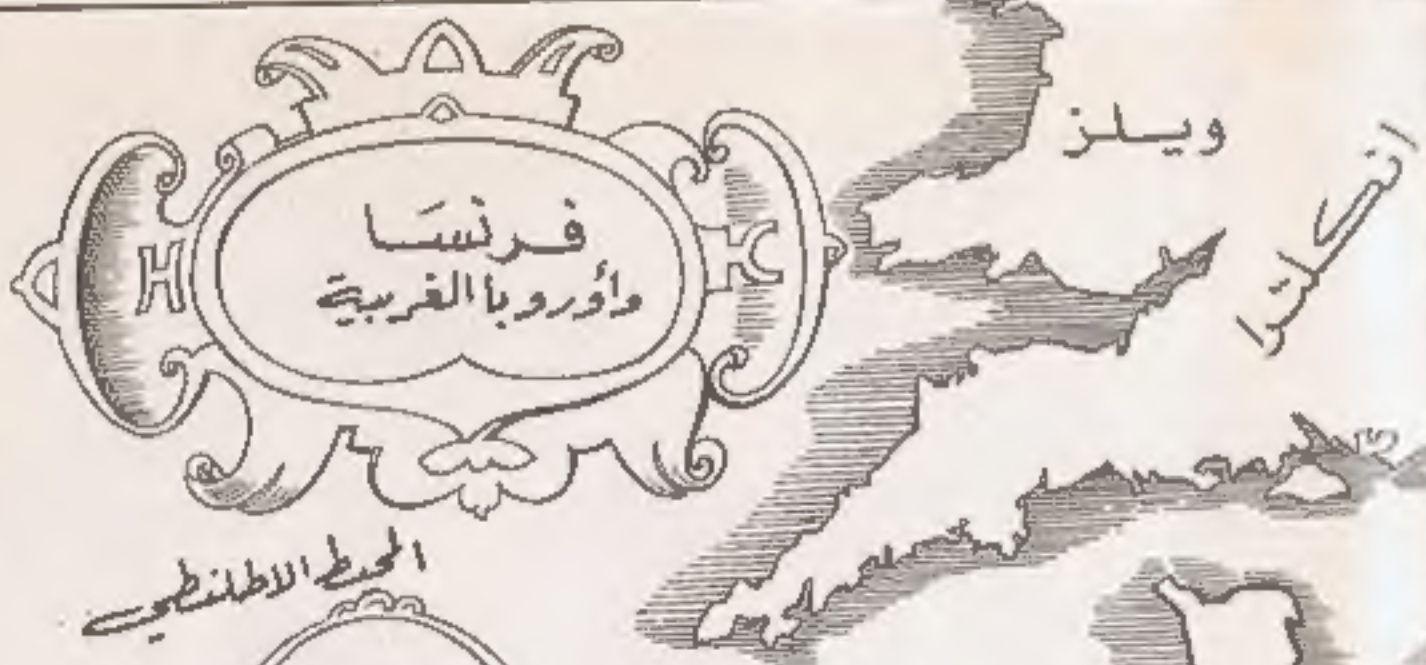 فرنسَا
وأوروبا الغربية
ويلز
انكلترا
المحيط الاطلنطي